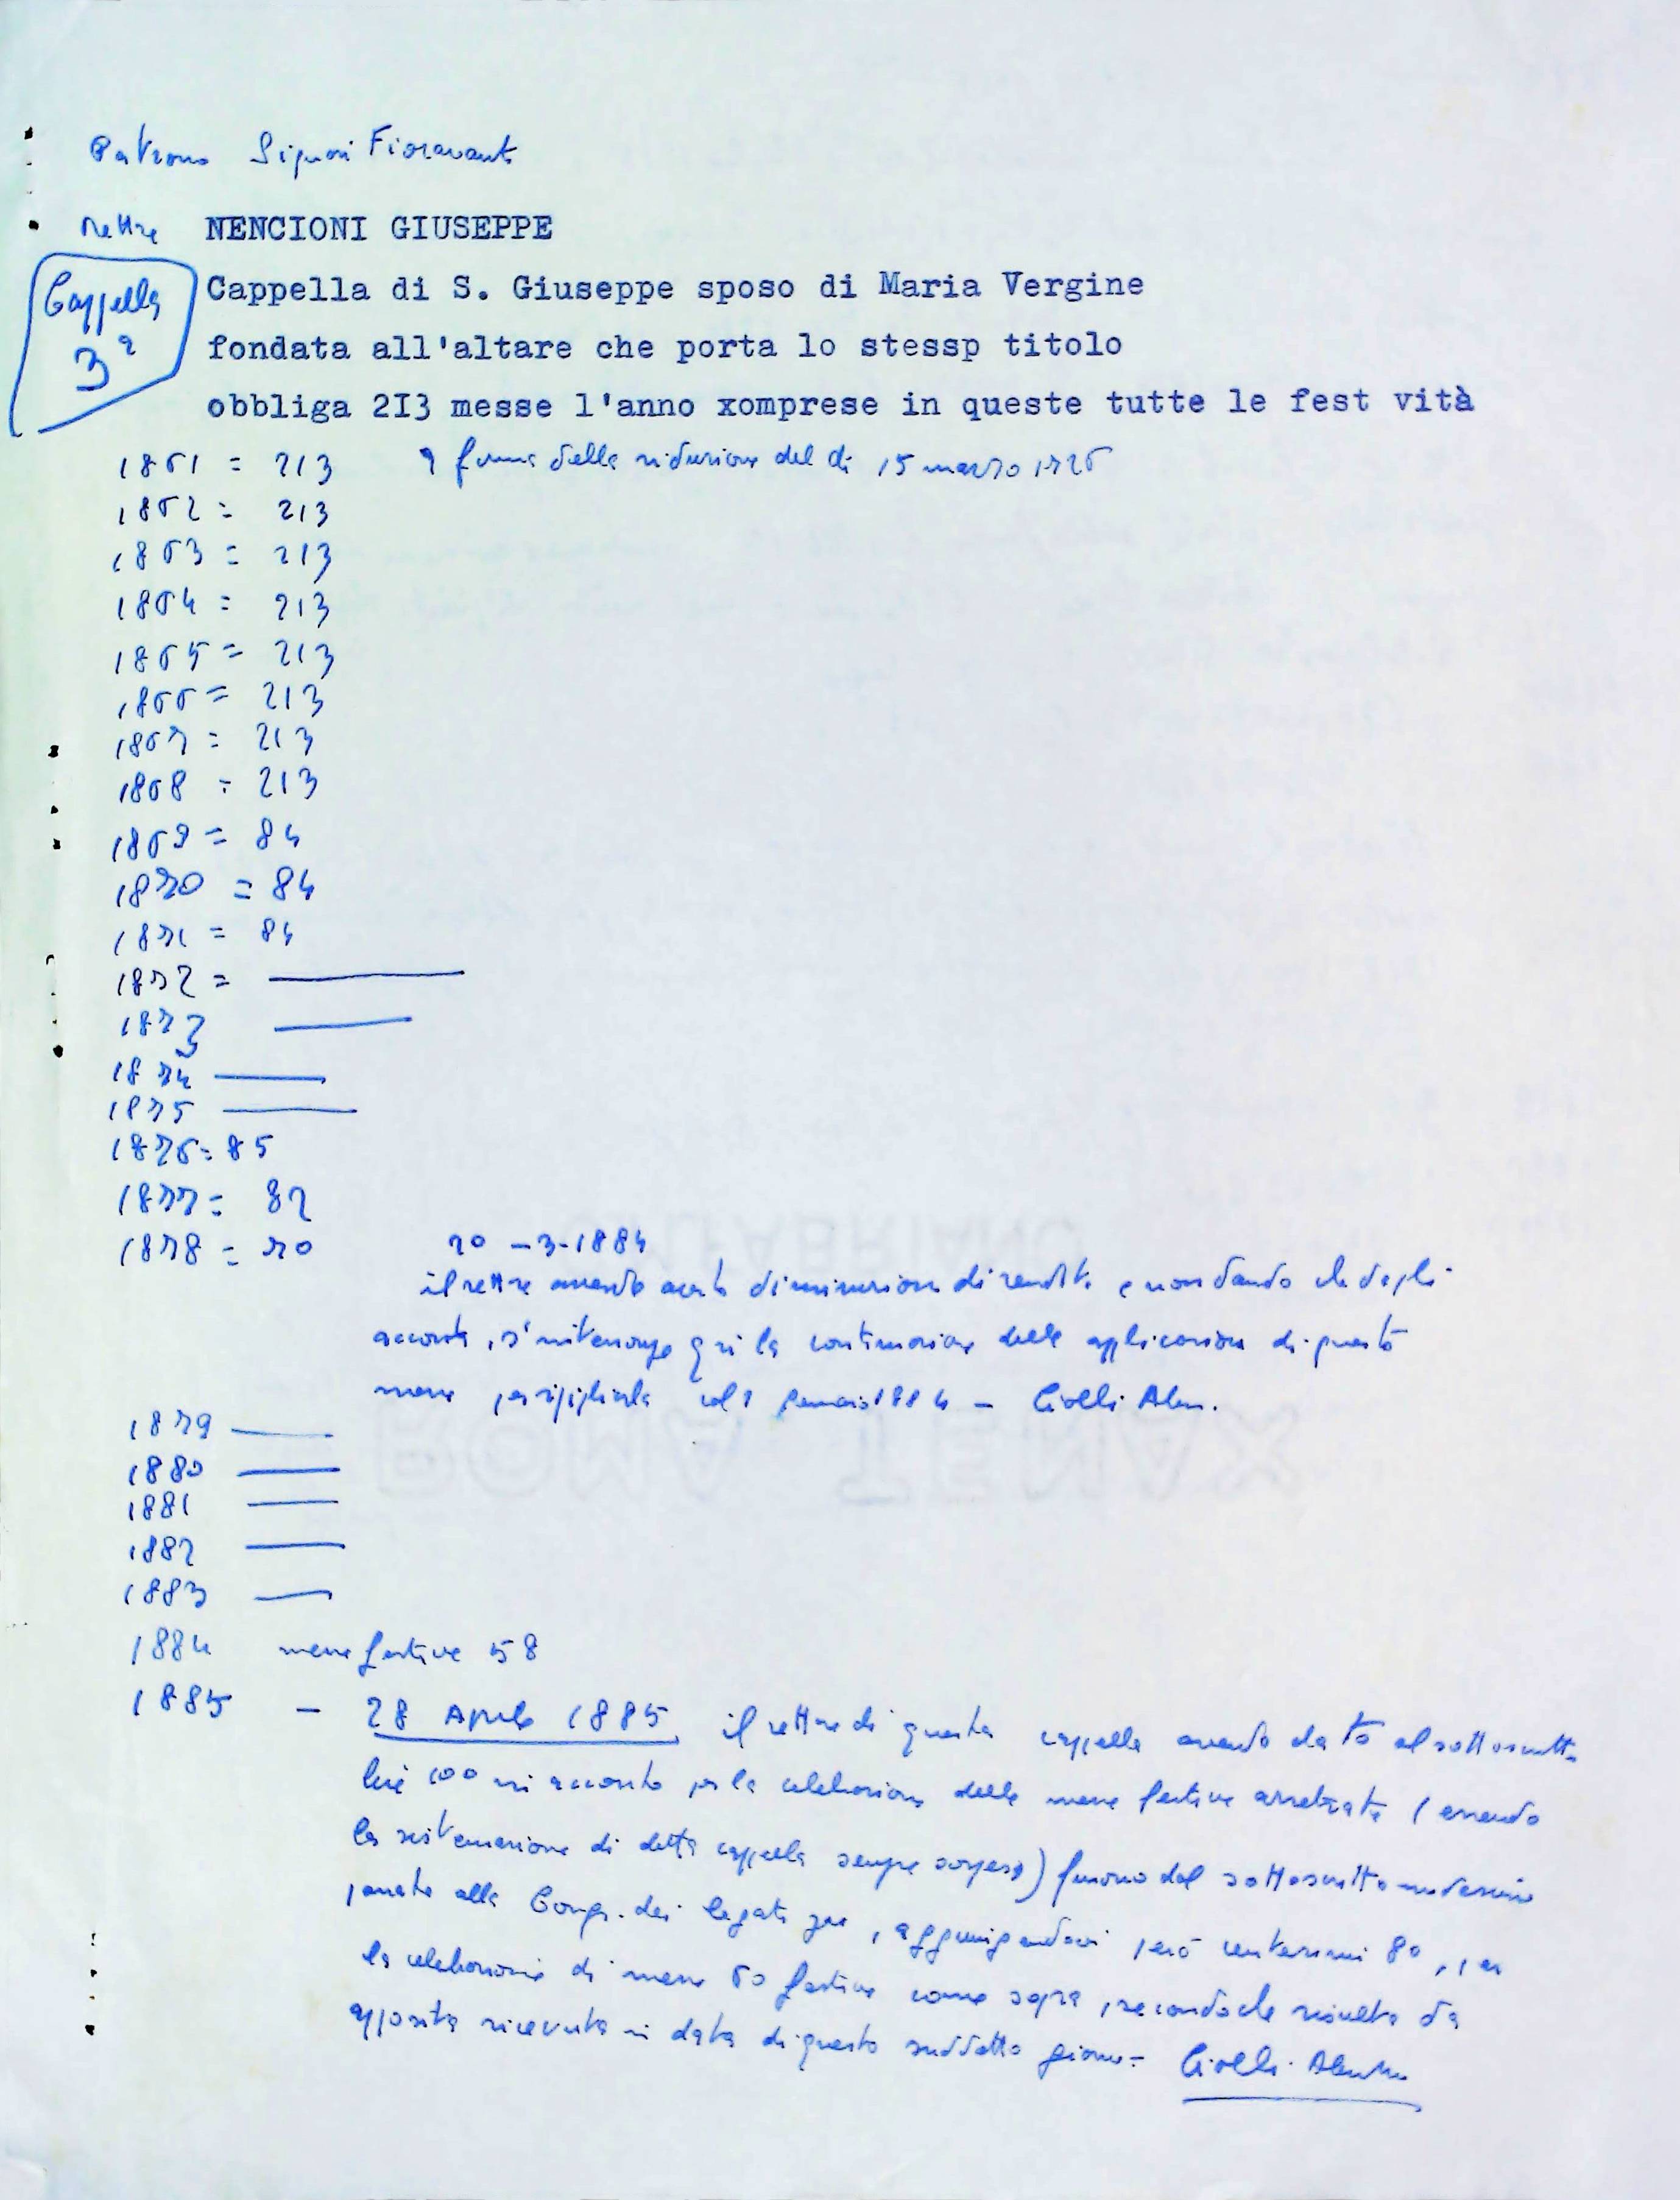 Patrono Signori Fioravanti
rettore NENCIONI GIUSEPPE
Cappella 3ª
Cappella di S. Giuseppe sposo di Maria Vergine
fondata all'altare che porta lo stessp titolo
obbliga 2I3 messe l'anno xomprese in queste tutte le fest vità
1861 = 213 a forma della riduzione del dì 15 marzo 1726
1862 = 213
1863 = 213
1864 = 213
1865 = 213
1866 = 213
1867 = 213
1868 = 213
1869 = 84
1870 = 84
1871 = 84
1872 =
1873
1874
1875
1876 = 85
1877 = 82
1878 = 70
20-3-1884
il rettore avendo avuto diminuzione di rendita e non dando che degli
acconti, s'interrompe qui la continuazione delle applicazioni di queste
messe per ripigliarla col 1 gennaio 1884 - Ciolli Aless.
1879
1880
1881
1882
1883
1884 messe festive 58
1885 - 28 Aprile 1885 il rettore di questa cappella avendo dato al sottoscritto
lire 100 in acconto per la celebrazione delle messe festive arretrate (essendo
la sistemazione di detta cappella sempre sospesa) furono dal sottoscritto medesimo
passate alla Congr. dei legati pii, aggiungendovi però centesimi 80, per
la celebrazione di messe 60 festive come sopra, secondoche risulta da
apposita ricevuta in data di questo suddetto giorno = Ciolli
ROMA TENAX